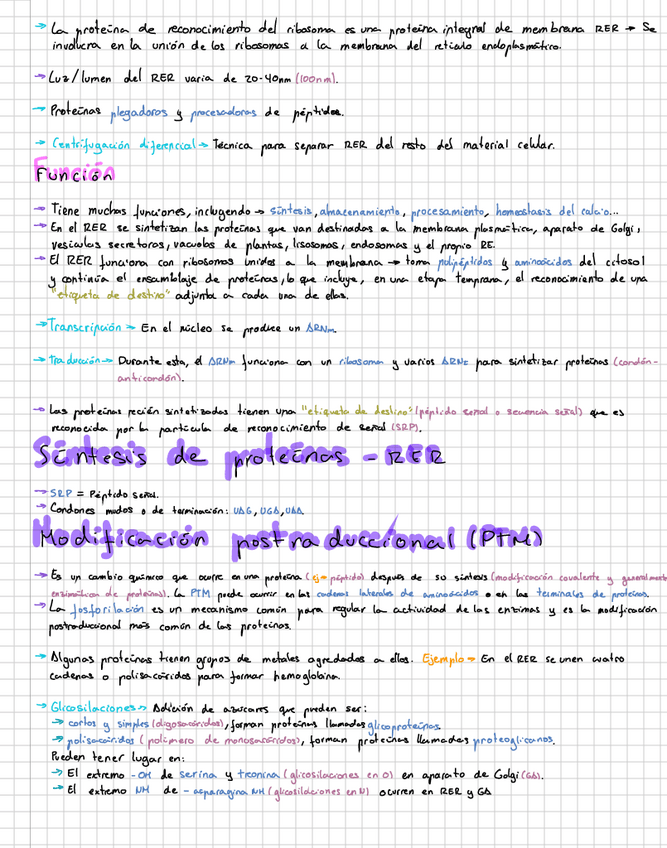 → La proteína de reconocimiento del ribosoma es una proteína integral de membrana RER → Se
involucra en la unión de los ribosomas a la membrana del retículo endoplasmático.
→ Luz/lumen del RER varia de 20-40nm (100nm).
→ Proteínas plegadoras y procesadoras de péptidos.
→ Centrifugación diferencial → Técnica para separar RER del resto del material celular.
Función
→ Tiene muchas funciones, incluyendo → síntesis, almacenamiento, procesamiento, homeostasis del calcio...
→ En el RER se sintetizan las proteínas que van destinadas a la membrana plasmática, aparato de Golgi,
vesículas secretoras, vacuolas de plantas, lisosomas, endosomas y el propio RE.
→ El RER funciona con ribosomas unidos a la membrana → toma polipéptidos y aminoácidos del citosol
y continúa el ensamblaje de proteínas, lo que incluye, en una etapa temprana, el reconocimiento de una
"etiqueta de destino" adjunta a cada una de ellas.
→ Transcripción → En el núcleo se produce un ARNm.
→ Traducción → Durante esta, el ARNm funciona con un ribosoma y varios ARNt para sintetizar proteínas (condón-
anticondón).
→ Las proteínas recién sintetizadas tienen una "etiqueta de destino" (péptido señal o secuencia señal) que es
reconocida por la partícula de reconocimiento de señal (SRP).
Síntesis de proteínas - RER
→ SRP = Péptido señal.
→ Condones mudos o de terminación: UAG, UGA, UAA
Modificación postraduccional (PTM)
→ Es un cambio químico que ocurre en una proteína (ej→ péptido) después de su síntesis (modificación covalente y generalmente
enzimática de proteínas). La PTM puede ocurrir en las cadenas laterales de aminoácidos o en las terminales de proteínas.
→ La fosforilación es un mecanismo común para regular la actividad de las enzimas y es la modificación
postraduccional más común de las proteínas.
→ Algunas proteínas tienen grupos de metales agredados a ellas. Ejemplo → En el RER se unen cuatro
cadenas o polisacáridos para formar hemoglobina.
→ Glicosilaciones → Adición de azucares que pueden ser:
→ cortos y simples (oligosacáridos), forman proteínas llamadas glicoproteínas.
→ polisacáridos (polímero de monosacáridos), forman proteínas llamadas proteoglicanos.
Pueden tener lugar en:
→ El extremo -OH de serina y treonina (glicosilaciones en O) en aparato de Golgi (GA).
→ El extremo NH de - asparagina NH (glicosilaciones en N) ocurren en RER y GA